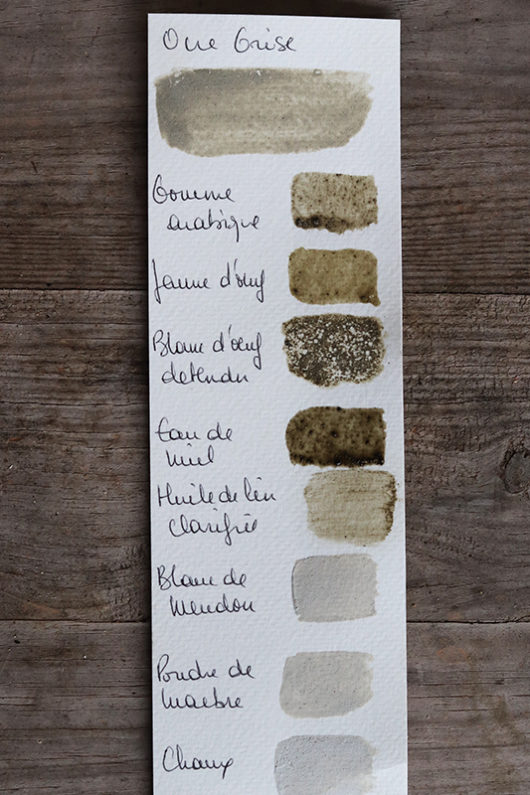 Ocre Grise
Gomme
arabique
Jaune d'œuf
Blanc d'œuf
détendu
Eau de
miel
Huile de lin
clarifiée
Blanc de
Meudon
Poudre de
marbre
Chaux